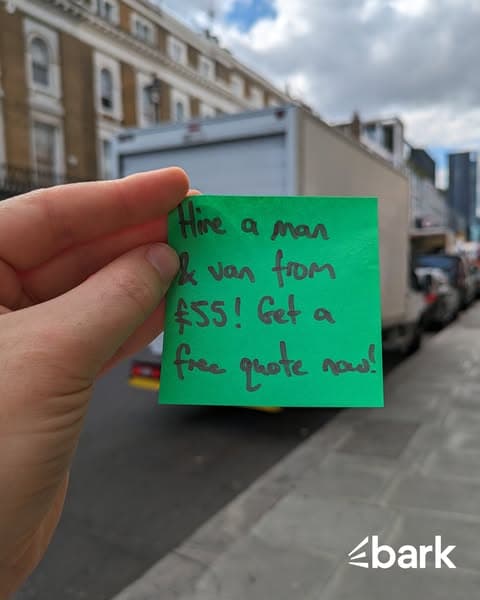 Hire a man
& van from
£55! Get a
free quote now!
bark